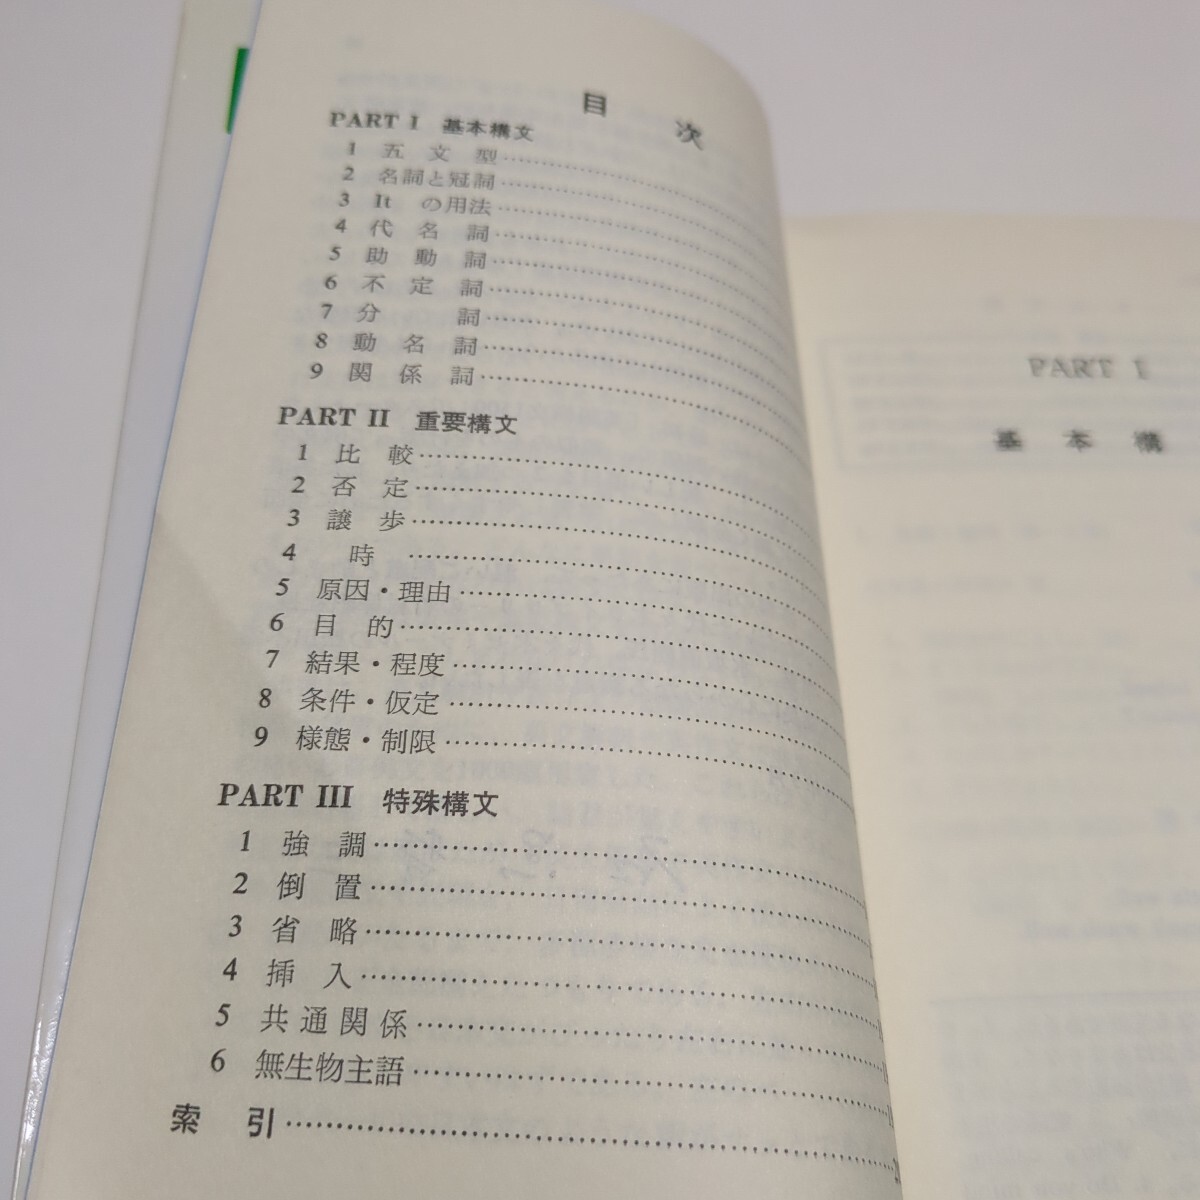 目次
PART I 基本構文
1 五文型
2 名詞と冠詞
3 It の用法
4 代名詞
5 助動詞
6 不定詞
7 分詞
8 動名詞
9 関係詞
PART II 重要構文
1 比較
2 否定
3 譲歩
4 時
5 原因・理由
6 目的
7 結果・程度
8 条件・仮定
9 様態・制限
PART III 特殊構文
1 強調
2 倒置
3 省略
4 挿入
5 共通関係
6 無生物主語
索引
PART I
基本構